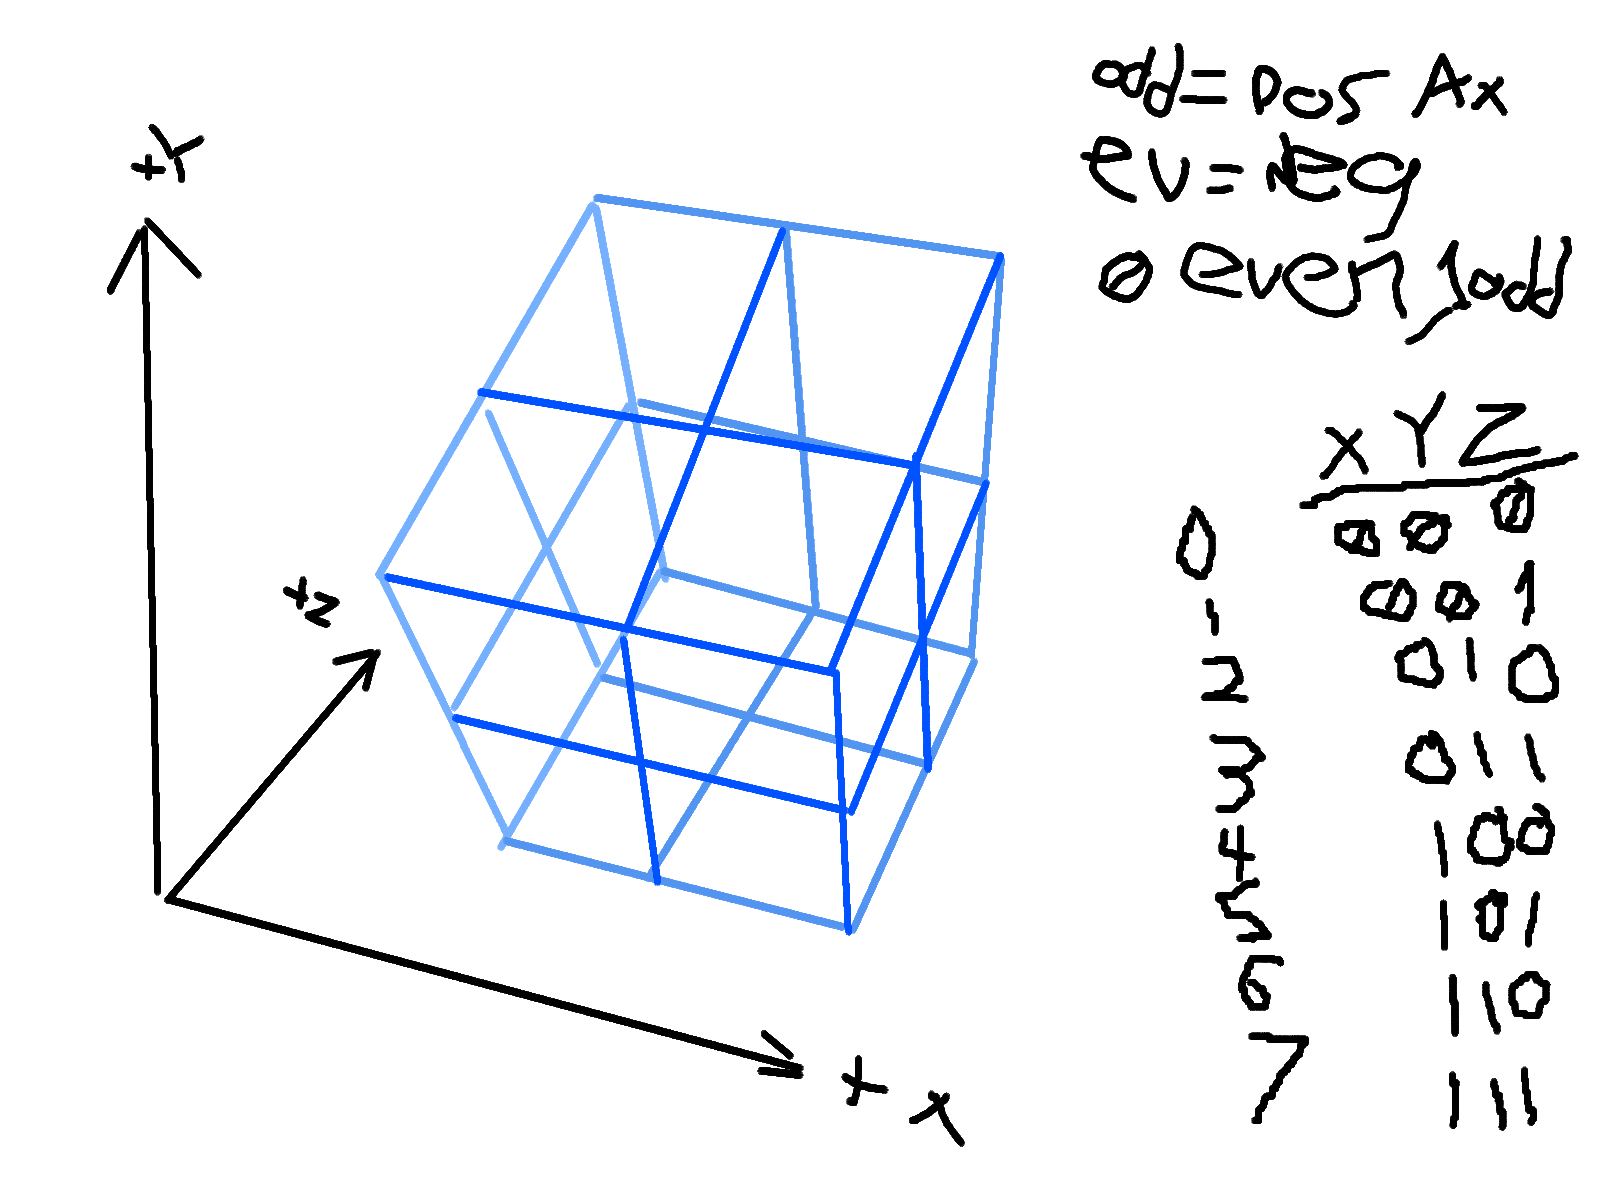 +Y
+z
+ x
odd = pos Ax
ev = neg
0 even, 1 odd
X Y Z
0 0 0 0
1 0 0 1
2 0 1 0
3 0 1 1
4 1 0 0
5 1 0 1
6 1 1 0
7 1 1 1